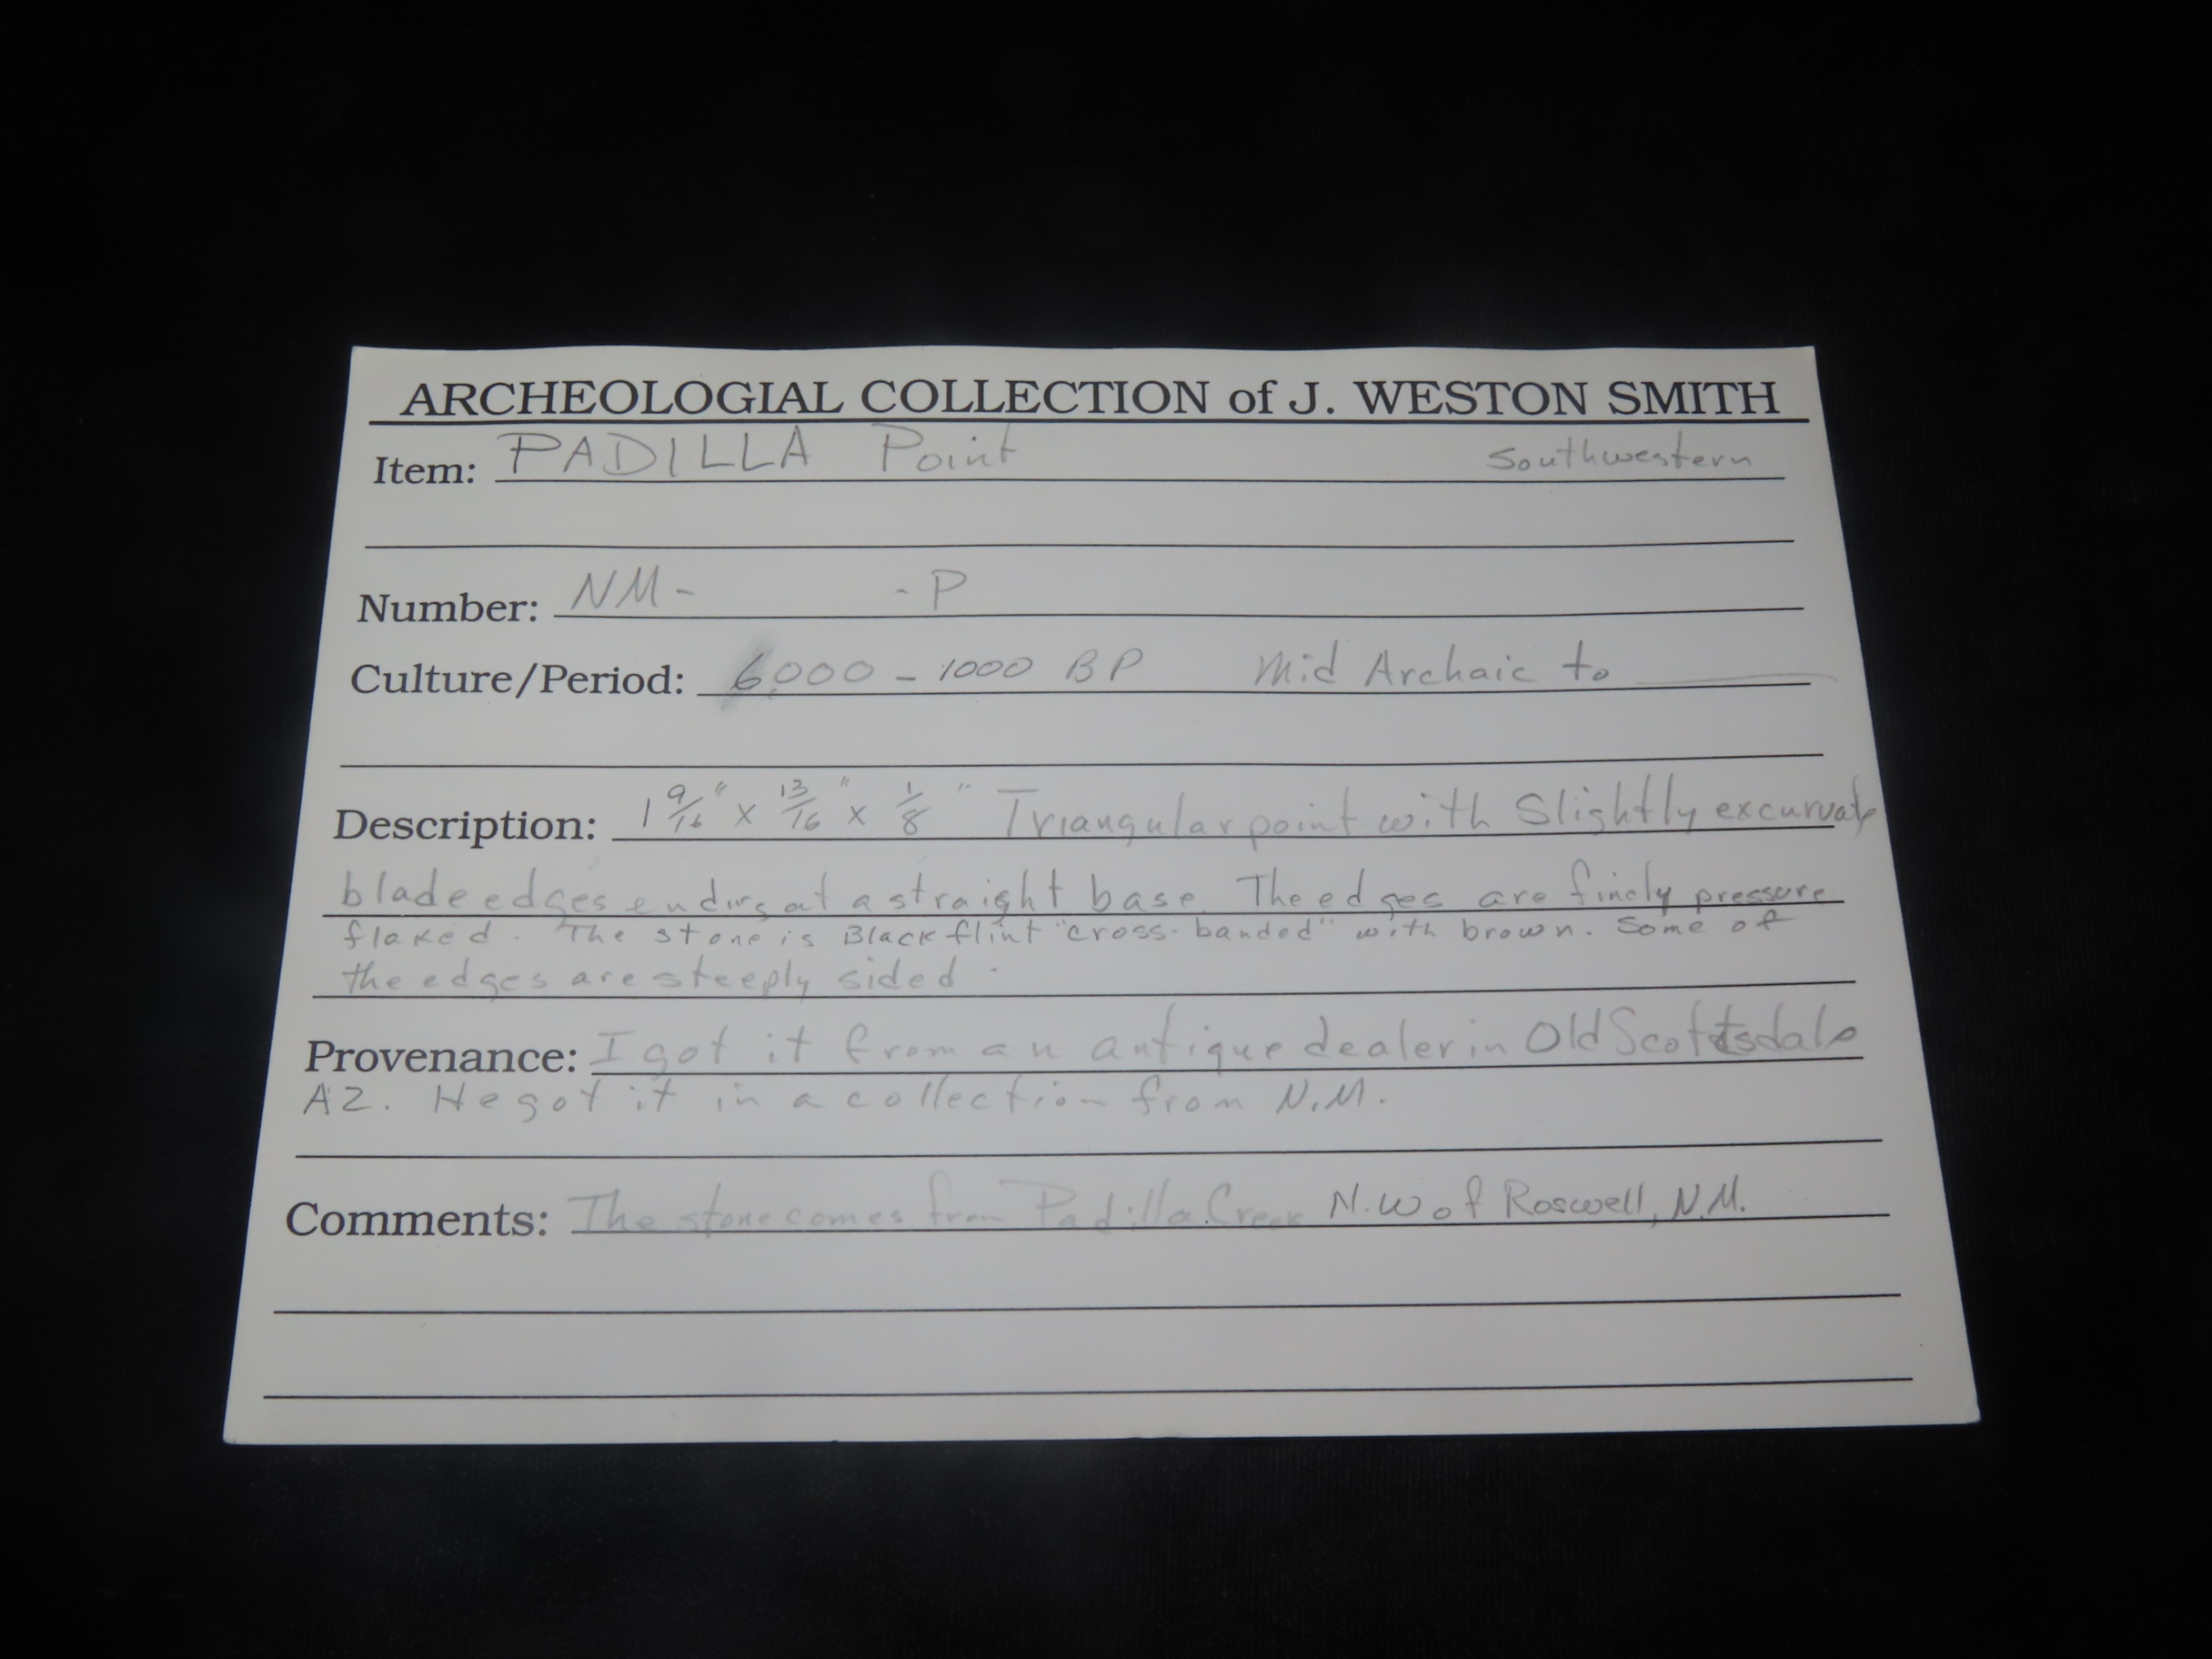 ARCHEOLOGIAL COLLECTION of J. WESTON SMITH
Item: PADILLA Point Southwestern
Number: NM- -P
Culture/Period: 6000 - 1000 BP Mid Archaic to
Description: 1 9/16" x 13/16" x 1/8" Triangular point with Slightly excurvate
blade edges ending at a straight base. The edges are finely pressure
flaked. The stone is Black flint "cross-banded" with brown. Some of
the edges are steeply sided.
Provenance: I got it from an antique dealer in Old Scottsdale
AZ. He got it in a collection from N.M.
Comments: The stone comes from Padilla Creek N.W of Roswell, N.M.